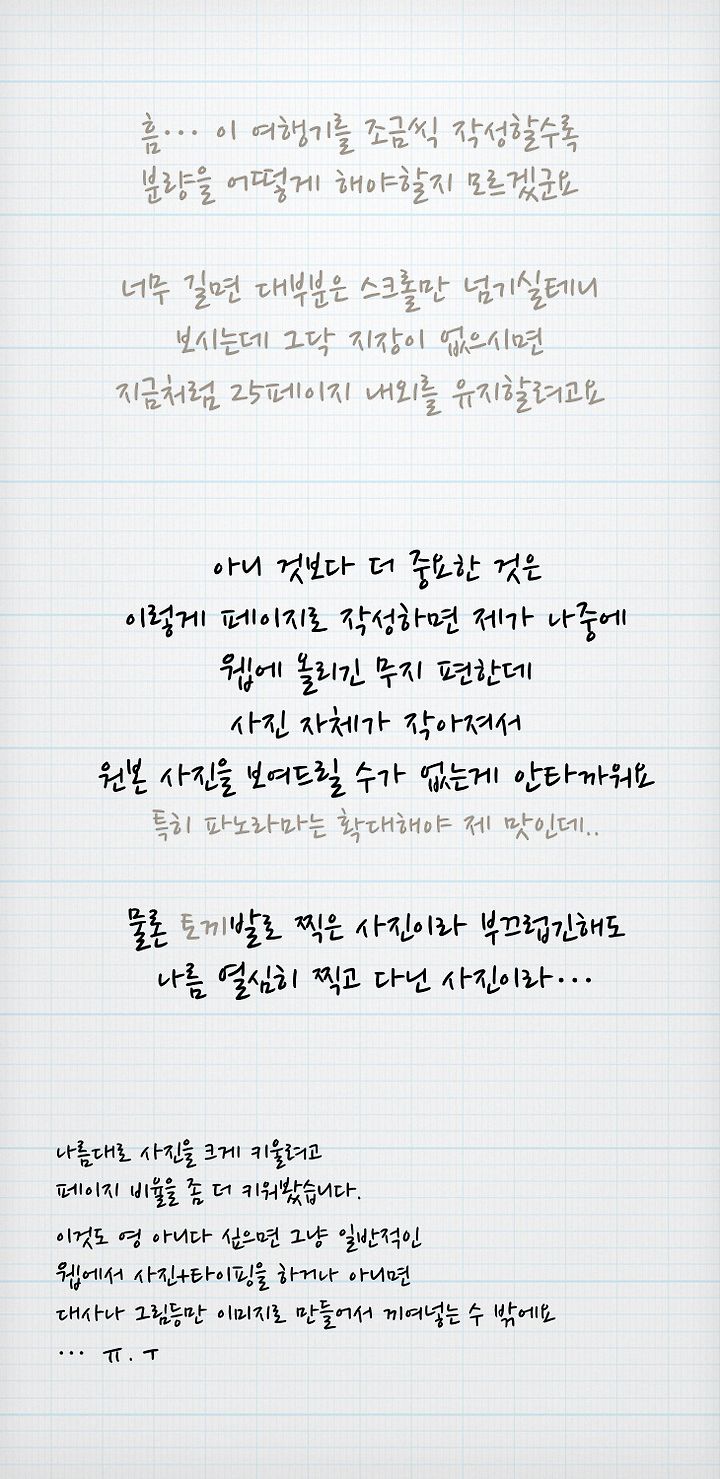 흠... 이 여행기를 조금씩 작성할수록
분량을 어떻게 해야할지 모르겠군요
너무 길면 대부분은 스크롤만 넘기실테니
보시는데 그닥 지장이 없으시면
지금처럼 25페이지 내외를 유지할려고요
아니 것보다 더 중요한 것은
이렇게 페이지로 작성하면 제가 나중에
웹에 올리긴 무지 편한데
사진 자체가 작아져서
원본 사진을 보여드릴 수가 없는게 안타까워요
특히 파노라마는 확대해야 제 맛인데..
물론 토끼발로 찍은 사진이라 부끄럽긴해도
나름 열심히 찍고 다닌 사진이라...
나름대로 사진을 크게 키울려고
페이지 비율을 좀 더 키워봤습니다.
이것도 영 아니다 싶으면 그냥 일반적인
웹에서 사진+타이핑을 하거나 아니면
대사나 그림등만 이미지로 만들어서 끼여넣는 수 밖에요
... ㅠ.ㅜ